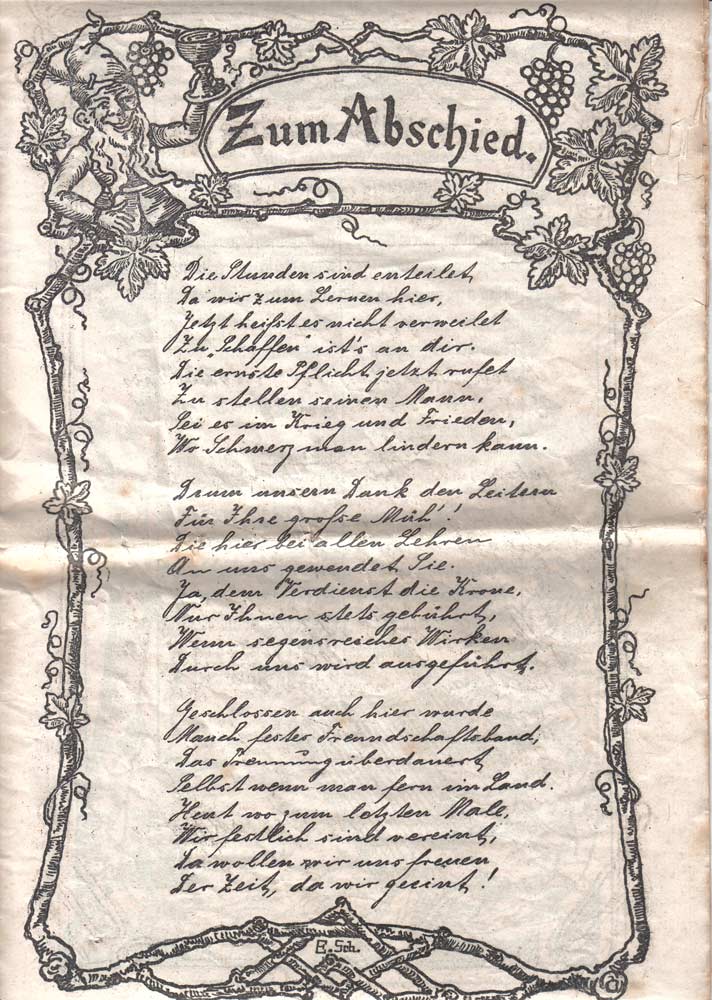 Zum Abschied.
Die Stunden sind enteilet,
Da wir zum Lernen hier,
Jetzt heißt es nicht verweilet
Zu „Schaffen" ist's an dir.
Die ernste Pflicht jetzt rufet
Zu stellen seinen Mann,
Sei es im Krieg und Frieden,
Wo Schmerz man lindern kann.
Drum unsern Dank den Leitern
Für Ihre große Müh'!
Die hier bei allen Lehren
An uns gewendet Sie.
Ja, dem Verdienst die Krone,
Nur Ihnen stets gebührt,
Wenn segensreiches Wirken
Durch uns wird ausgeführt.
Geschlossen auch hier wurde
Manch festes Freundschaftsband,
Das Trennung überdauert,
Selbst wenn man fern im Land.
Heut wo zum letzten Male,
Wir festlich sind vereint,
Da wollen wir uns freuen
Der Zeit, da wir geeint!
E. Sch.